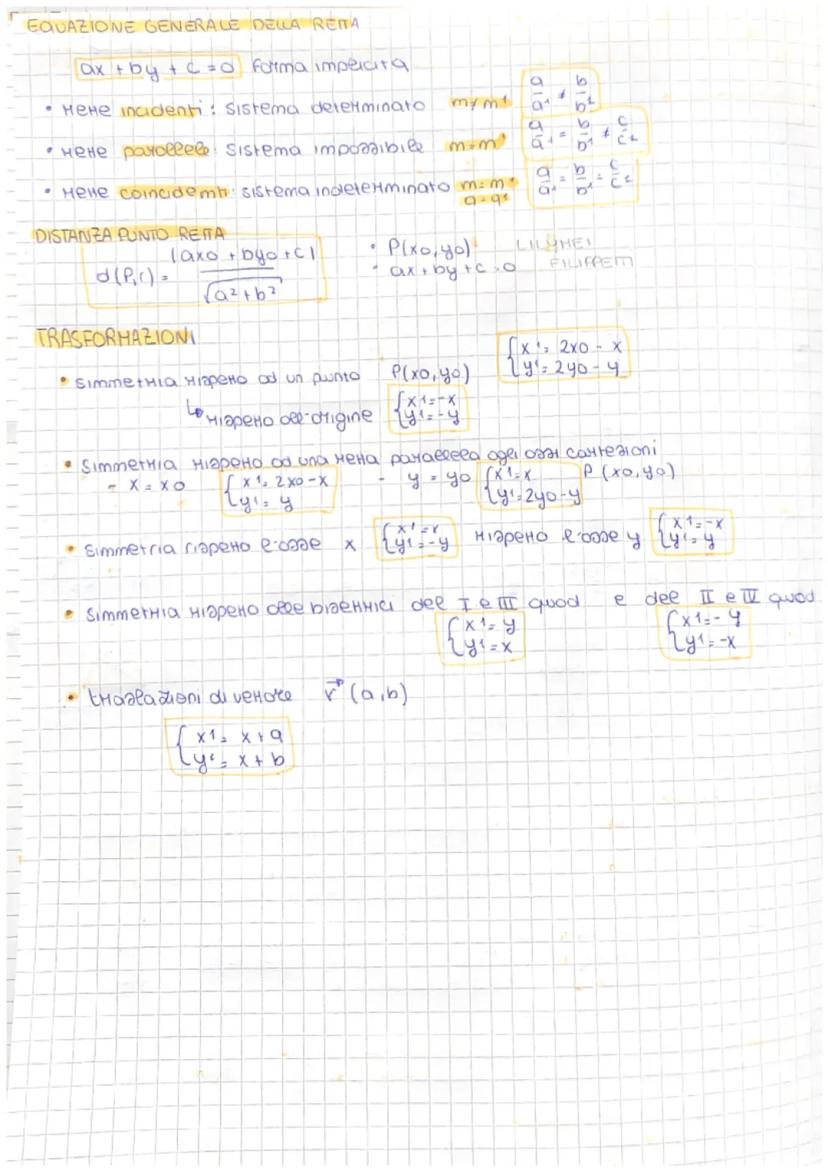 EQUAZIONE GENERALE DELLA RETTA
ax + by + c = 0 forma implicita
• rette incidenti: sistema determinato m ≠ m' a/a' ≠ b/b'
• rette parallele: sistema impossibile m = m' a/a' = b/b' ≠ c/c'
• rette coincidenti: sistema indeterminato m = m' q = q' a/a' = b/b' = c/c'
DISTANZA PUNTO RETTA
d(P,r) = |ax0 + by0 + c| / √a² + b²
• P(x0, y0)
• ax + by + c = 0
FILIPPETTI
TRASFORMAZIONI
• simmetria rispetto ad un punto P(x0, y0) { x' = 2x0 - x y' = 2y0 - y
↳ rispetto all'origine { x' = -x y' = -y
• simmetria rispetto ad una retta parallela agli assi cartesiani
- x = x0 { x' = 2x0 - x y' = y - y = y0 { x' = x y' = 2y0 - y P (x0, y0)
• simmetria rispetto l'asse x { x' = x y' = -y rispetto l'asse y { x' = -x y' = y
• simmetria rispetto alle bisettrici del I e III quad e del II e IV quad
{ x' = y y' = x { x' = -y y' = -x
• traslazioni di vettore (a, b)
{ x' = x + a y' = x + b